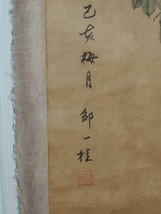 己亥梅月
邹一桂